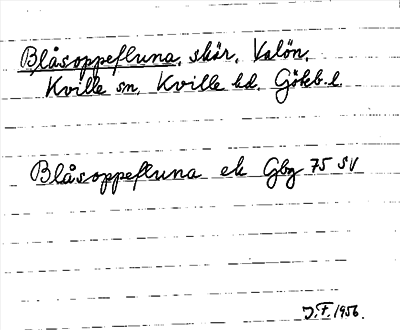 Blåsoppefluna, skär, Valön,
Kville sn, Kville hd. Göteb. l.
Blåsoppefluna ek Gbg 75 SV
J.F. 1956.